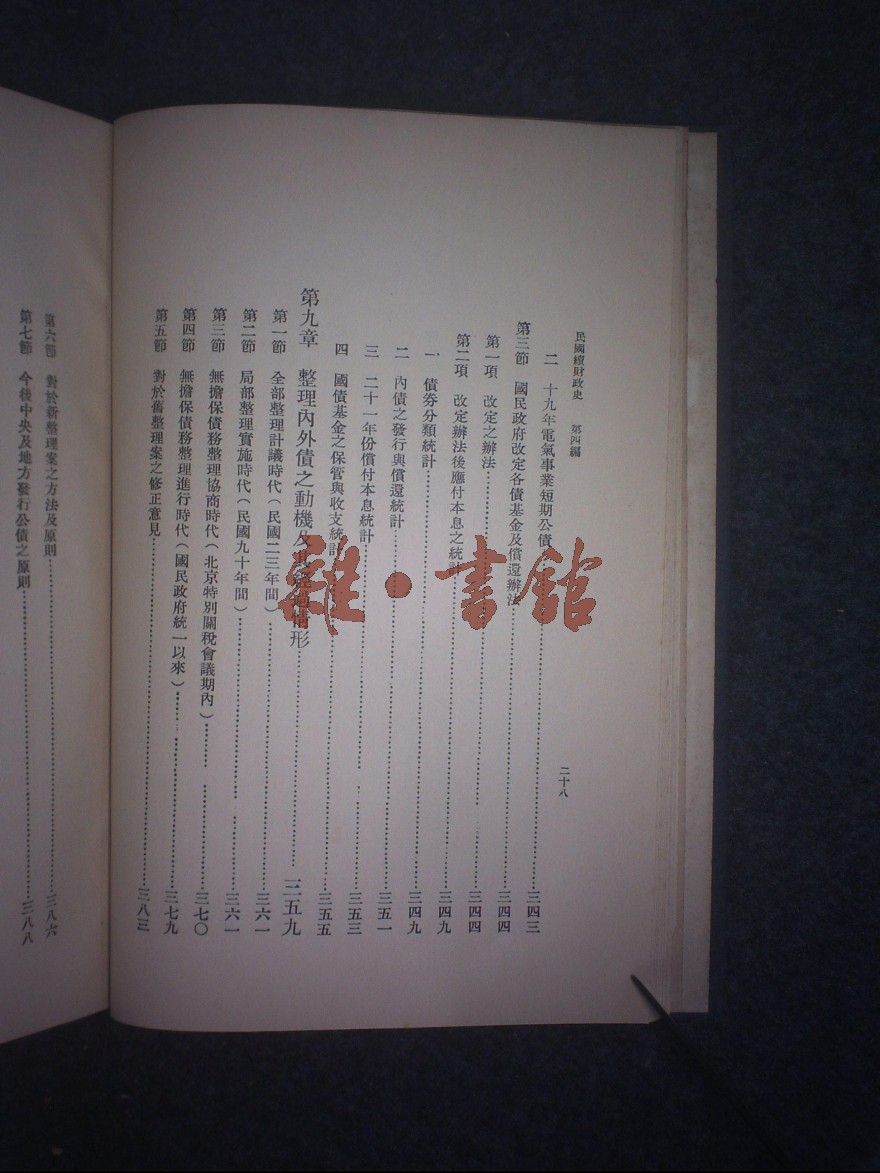 民國續財政史　第四編　二十八
二　十九年電氣事業短期公債……三四三
第三節　國民政府改定各債基金及償還辦法……三四四
第一項　改定之辦法……三四四
第二項　改定辦法後應付本息之統計……三四九
一　債券分類統計……三四九
二　內債之發行與償還統計……三五一
三　二十一年份償付本息統計……三五三
四　國債基金之保管與收支統計……三五五
第九章　整理內外債之動機及其經過情形……三五九
第一節　全部整理計議時代（民國二三年間）……三六一
第二節　局部整理實施時代（民國九十年間）……三六一
第三節　無擔保債務整理協商時代（北京特別關稅會議期內）……三七〇
第四節　無擔保債務整理進行時代（國民政府統一以來）……三七九
第五節　對於舊整理案之修正意見……三八三
第六節　對於新整理案之方法及原則……三八六
第七節　今後中央及地方發行公債之原則……三八八
雜·書館